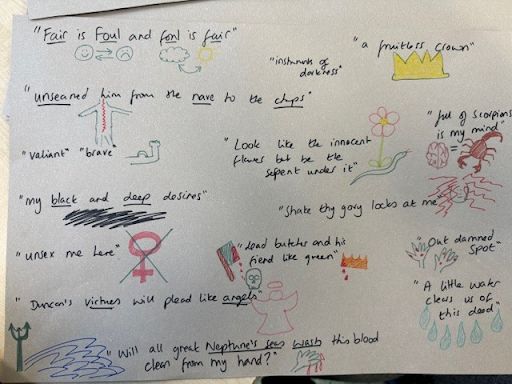 "Fair is Foul and foul is fair"
"a fruitless crown"
"instruments of
darkness"
"unseamed him from the nave to the chops"
"full of Scorpions
is my mind"
"valiant" "brave"
"Look like the innocent
flower but be the
serpent under it"
"my black and deep desires"
"Shake thy gory locks at me
"unsex me here"
"dead butcher and his
fiend like queen"
"Out damned
Spot"
"Duncan's virtues will plead like angels"
"A little water
clears us of
this deed"
"Will all great Neptune's seas wash this blood
clean from my hand?"